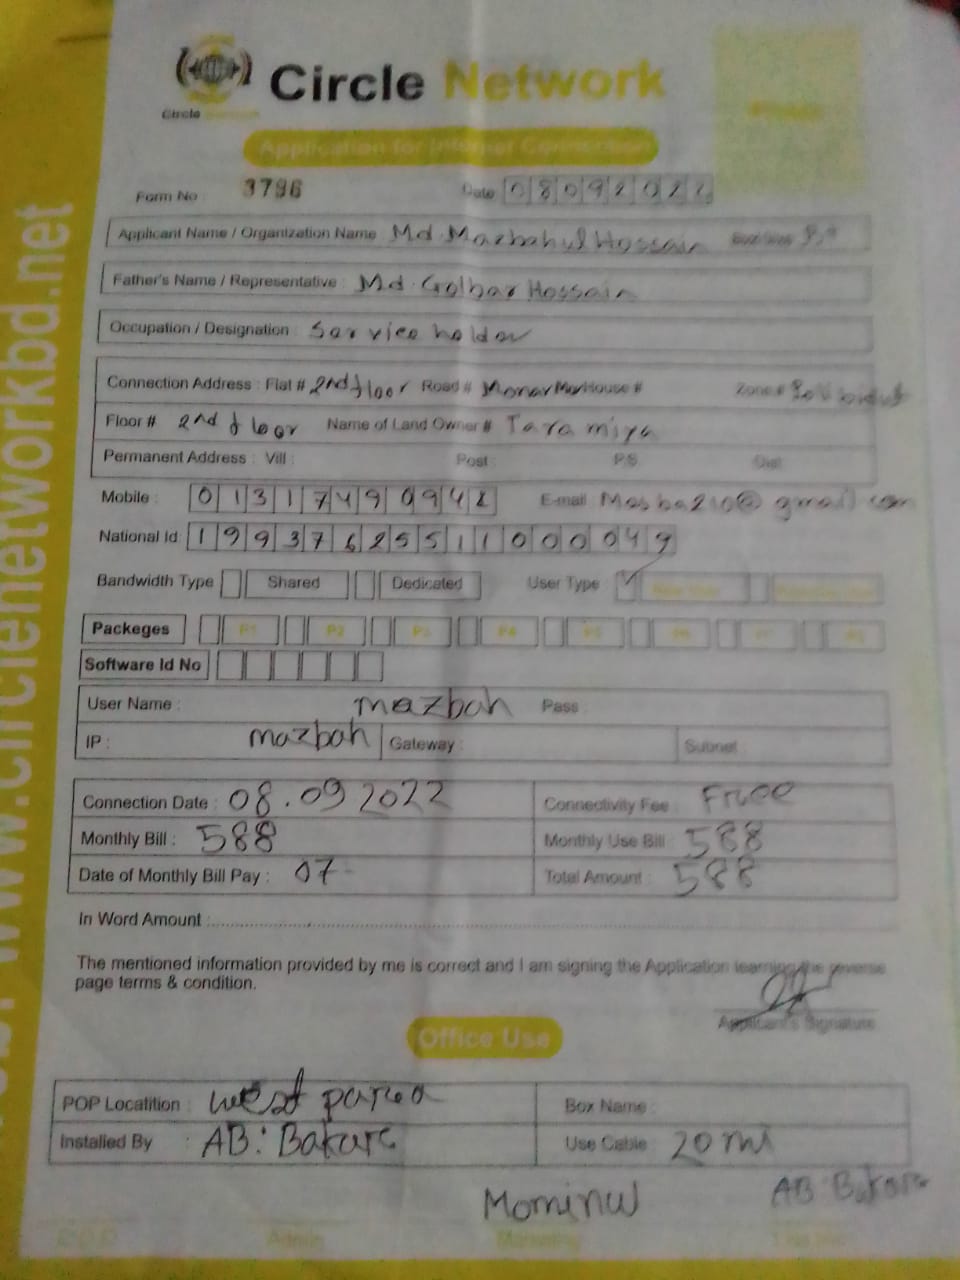 Circle Network
Circle
Application for Internet Connection
Form No 3796 Date 08092022
Applicant Name / Organization Name Md. Mazbahul Hossain
Father's Name / Representative : Md. Golbar Hossain
Occupation / Designation : Sarvice holder
Connection Address : Flat # 2nd floor Road # House # Zone #
Floor # 2nd floor Name of Land Owner # Tara miya
Permanent Address : Vill : Post : P.S Dist
Mobile : E-mail @gmail.com
National Id
Bandwidth Type Shared Dedicated User Type
Packeges P1 P2 P3 P4 P5 P6 P7 P8
Software Id No
User Name : mazbah Pass :
IP : mazbah Gateway : Subnet :
Connection Date : 08.09 2022 Connectivity Fee : Free
Monthly Bill : 588 Monthly Use Bill : 588
Date of Monthly Bill Pay : 07 Total Amount : 588
In Word Amount :
The mentioned information provided by me is correct and I am signing the Application learning the reverse
page terms & condition.
Applicant's Signature
Office Use
POP Locatition : west parea Box Name :
Installed By : AB: Bakare Use Cable 20 mi
Mominul AB Bakare
Admin Marketing
www.circlenetworkbd.net